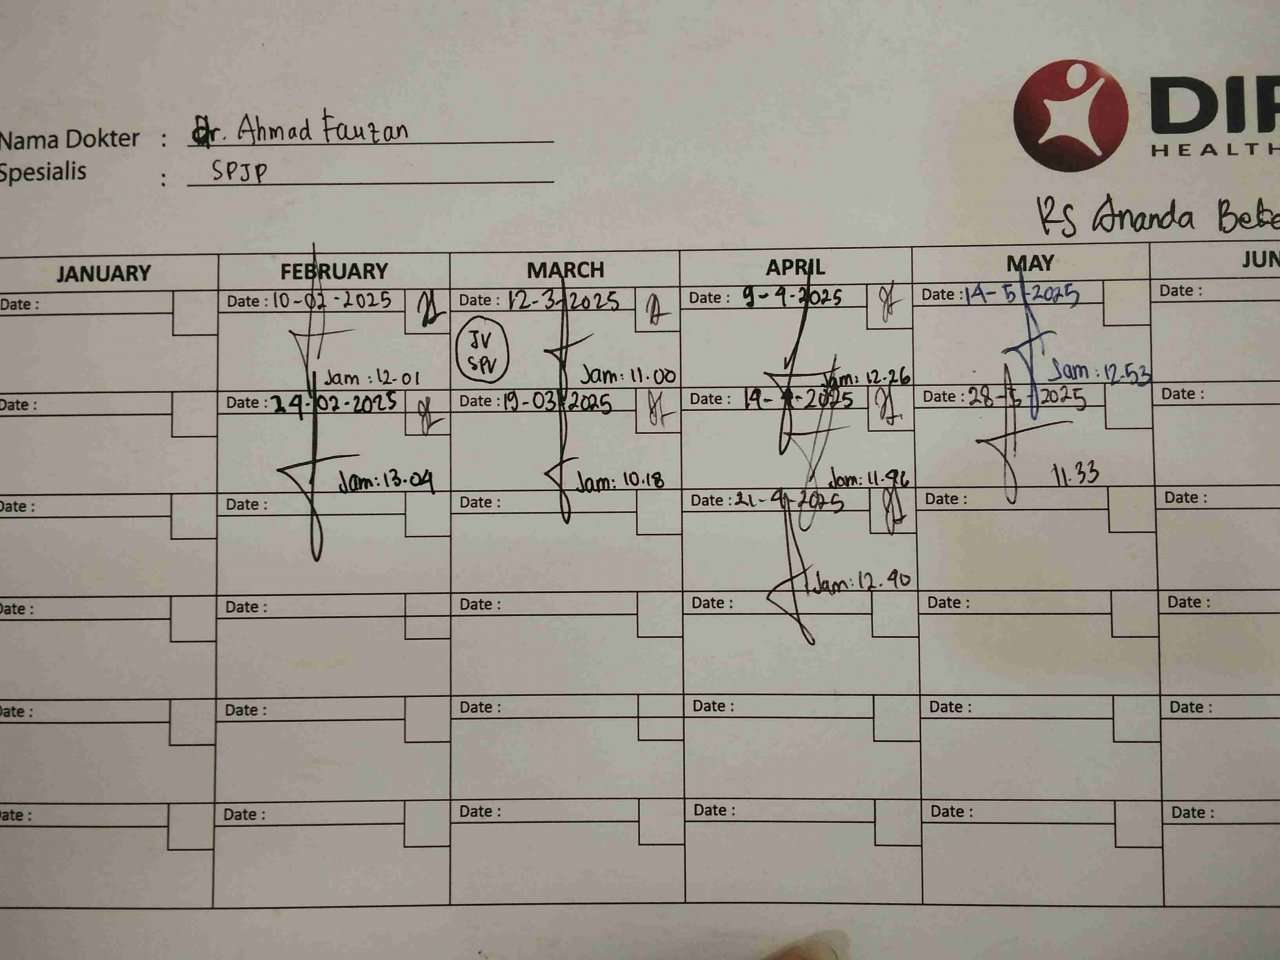 Nama Dokter : Dr. Ahmad Fauzan
Spesialis : SPJP
DIP
HEALTH
RS Ananda Beke
JANUARY FEBRUARY MARCH APRIL MAY JUN
Date : Date : 10-02-2025 Date : 12-3-2025 Date : 9-4-2025 Date : 14-5-2025 Date :
JV
SPV
Jam : 12.01 Jam: 11.00 Jam: 12.26 Jam: 12.53
Date : Date : 24-02-2025 Date : 19-03-2025 Date : 14-4-2025 Date : 28-5-2025 Date :
Jam: 13.04 Jam: 10.18 Jam: 11.46 11.33
Date : Date : Date : Date : 21-4-2025 Date : Date :
Jam: 12.40
Date : Date : Date : Date : Date : Date :
Date : Date : Date : Date : Date : Date :
Date : Date : Date : Date : Date : Date :